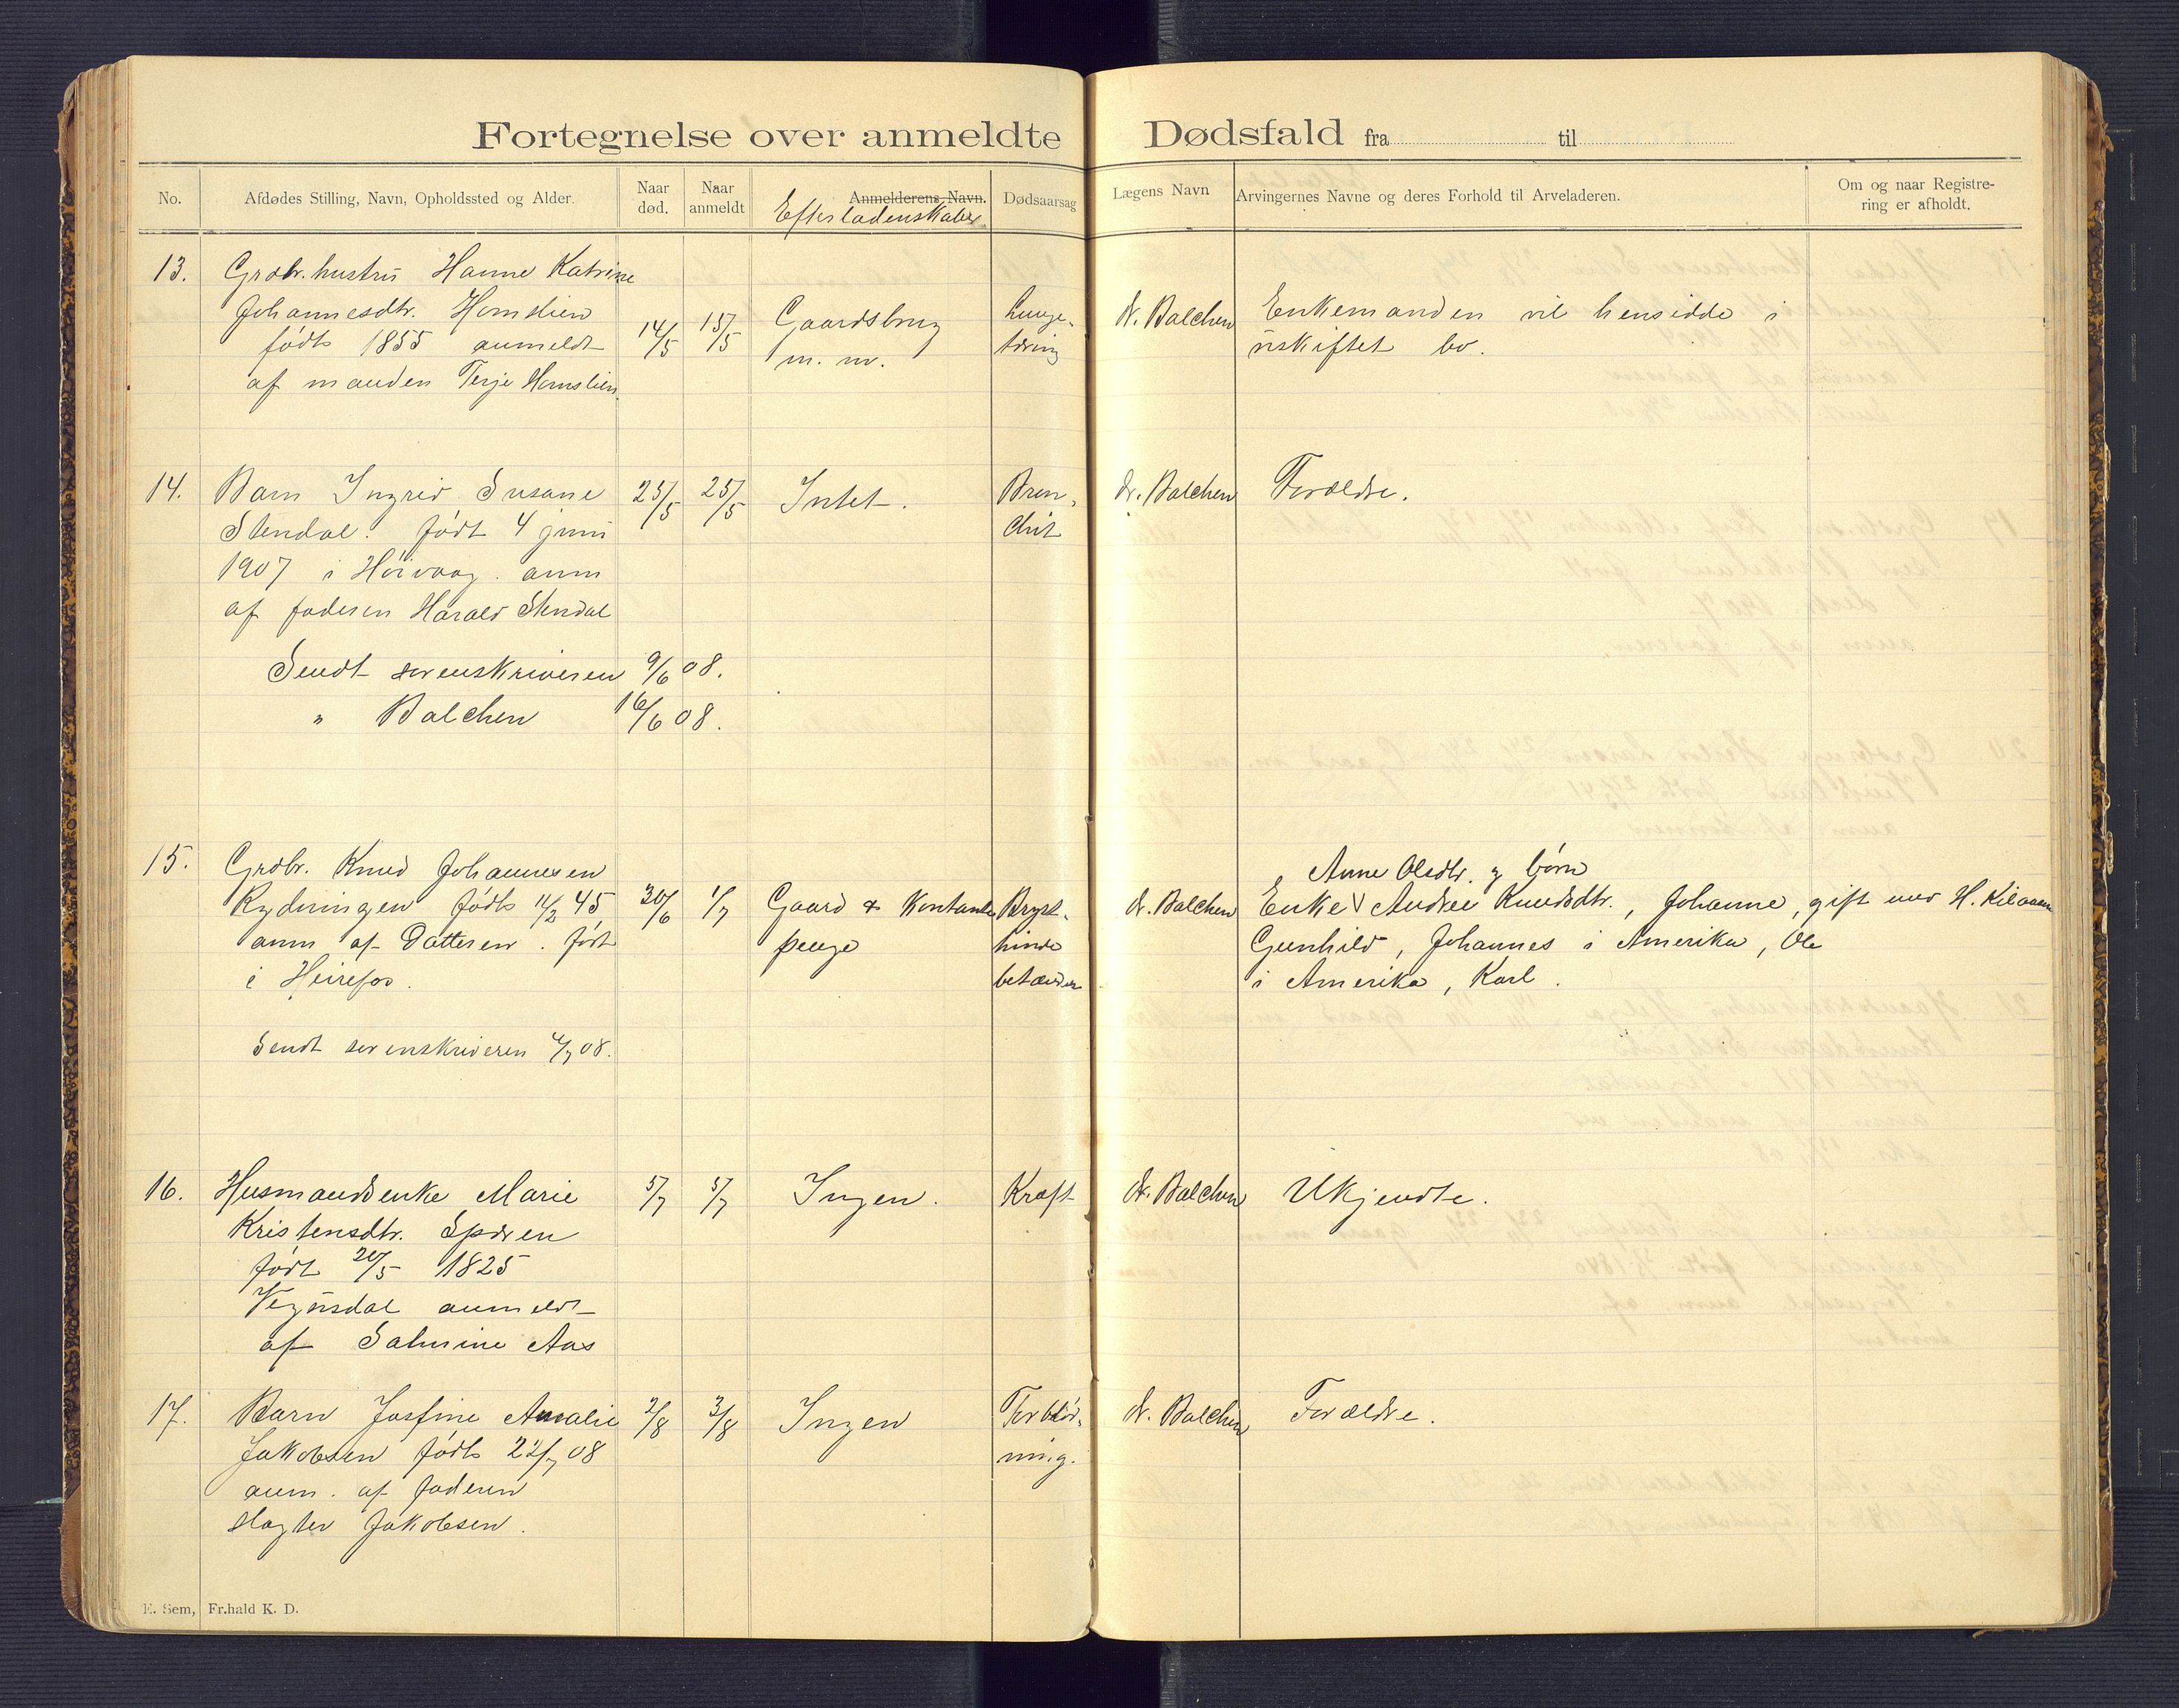 Fortegnelse over anmeldte Dødsfald fra til
No. Afdødes Stilling, Navn, Opholdssted og Alder. Naar død. Naar anmeldt Anmelderens Navn. Efterladenskaber Dødsaarsag Lægens Navn Arvingernes Navne og deres Forhold til Arveladeren. Om og naar Registrering er afholdt.
13. Grdbr. hustru Hanne Katrine
Johannesdtr. Homslien
født 1855 anmeldt
af manden Terje Homslien.
14/5 15/5
Gaardsbrug
m. m.
Lunge-
tæring
dr. Balchen
Enkemanden vil hensidde i
uskiftet bo.
14. Barn Ingrid Susane
Stendal. født 4 juni
1907 i Høivaag. anm
af faderen Harald Stendal
25/5 25/5 Intet.
Bron-
chit
dr. Balchen Forældre.
Sendt sorenskriveren 9/6 08.
" Balchen 16/6 08.
15. Grdbr. Knud Johannesen
Rydningen født 11/2 45
anm af Datteren. født
i Heirefos.
30/6 1/7
Gaard & Kontante
penge
Bryst-
hinde
betændelse
dr. Balchen
Anne Olsdtr. og børn
Enke V Andrea Knudsdtr., Johanne, gift med H. Kilaasen
Gunhild, Johannes i Amerika, Ole
i Amerika, Karl.
Sendt sorenskriveren 4/7 08.
16. Husmandsenke Marie
Kristensdtr.
født 20/5 1825
Vegusdal anmeldt
af Salmine Aas
5/7 5/7 Ingen. Kræft dr. Balchen Ukjendte.
17. Barn Josfine Amalie
Jakobsen født 22/7 08
anm. af faderen
slagter Jakobsen.
2/8 3/8 Ingen
Forblød-
ning.
dr. Balchen Forældre.
E. Sem, Fr.hald K. D.